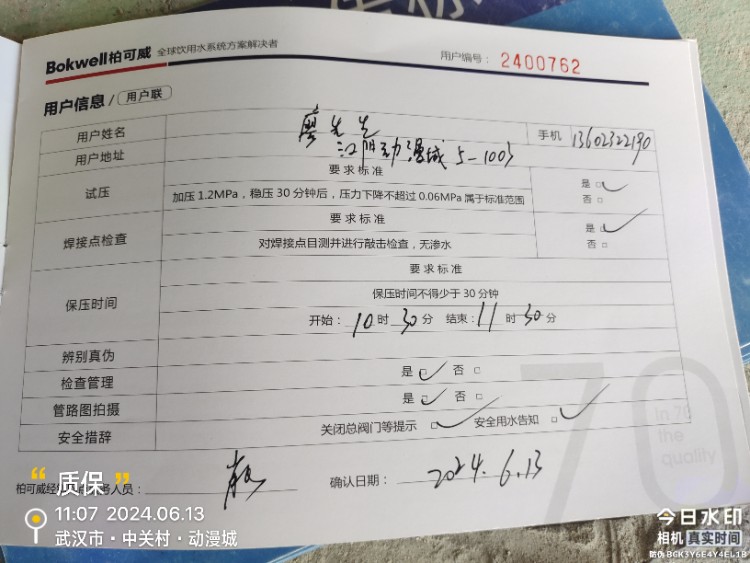 Bokwell柏可威 全球饮用水系统方案解决者
用户编号：2400762
用户信息/用户联
用户姓名 廖先生 手机 13602322190
用户地址 江阴动漫城 5-1003
试压 要求标准 是□✓
加压1.2MPa，稳压30分钟后，压力下降不超过0.06MPa属于标准范围 否□
焊接点检查 要求标准 是□✓
对焊接点目测并进行敲击检查，无渗水 否□
保压时间 要求标准
保压时间不得少于30分钟
开始：10时30分 结束：11时30分
辨别真伪
检查管理 是□✓ 否□
管路图拍摄 是□✓ 否□
安全措辞 关闭总阀门等提示□✓ 安全用水告知□✓
70
In 70
the
quality
柏可威经 务人员：
确认日期：2024.6.13
“质保”
11:07 2024.06.13
武汉市·中关村·动漫城
今日水印
相机 真实时间
防伪 BGK3Y6E4Y4EL1B